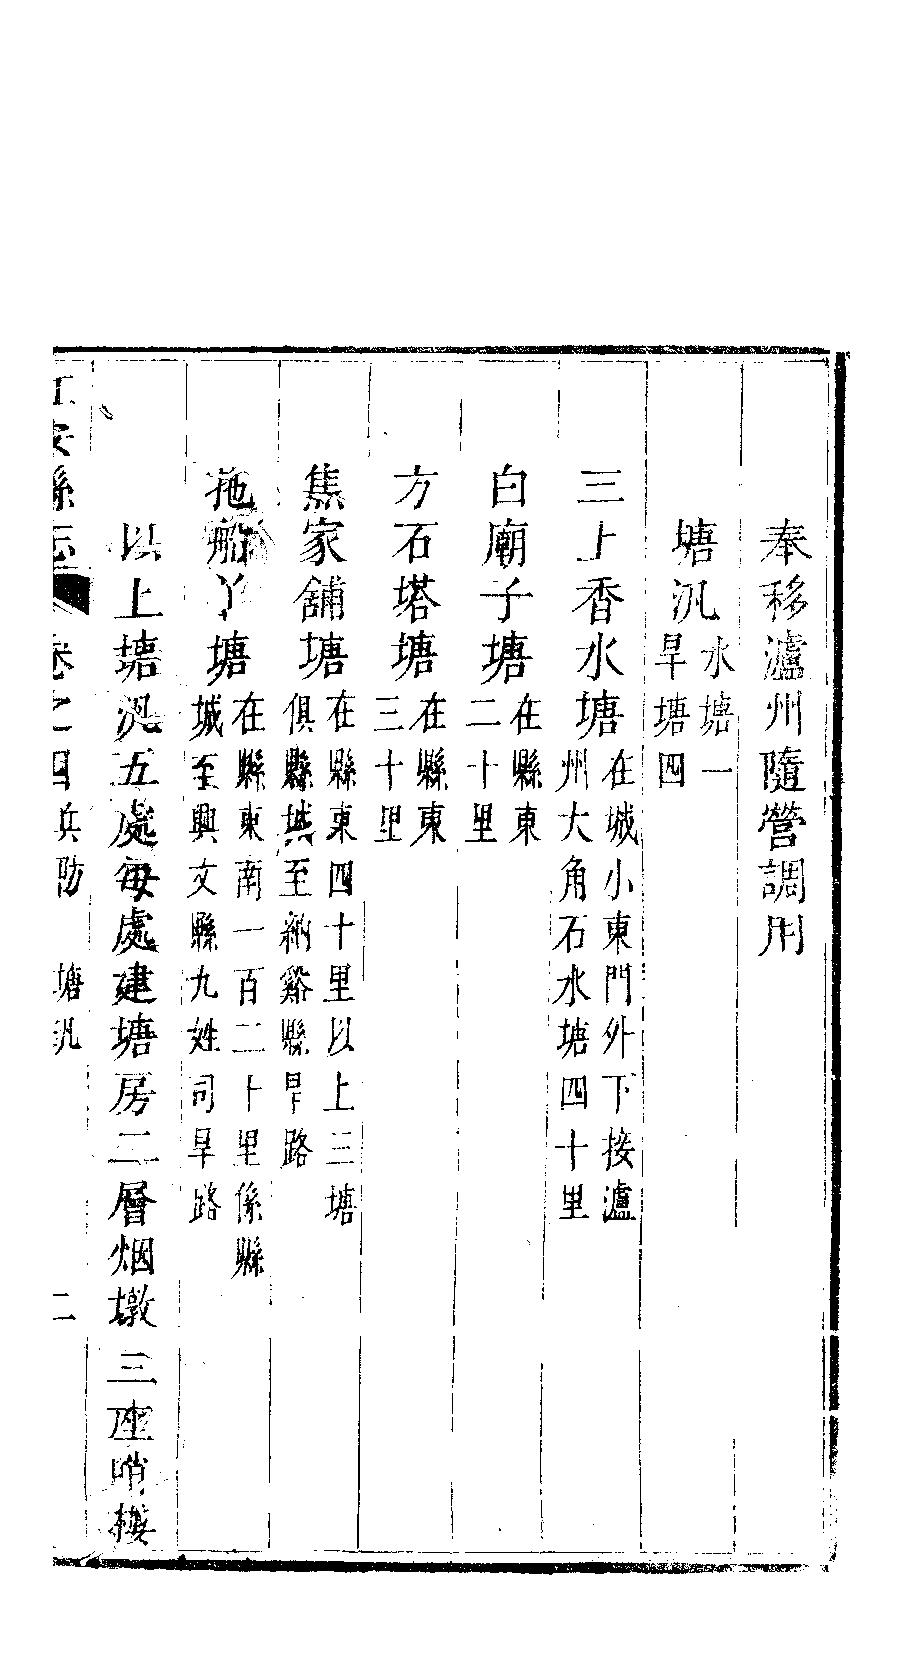 奉移瀘州隨營調用
塘汛水塘一旱塘四
三上香水塘在城小東門外下接瀘州大角石水塘四十里
白廟子塘在縣東二十里
方石塔塘在縣東三十里
焦家舖塘在縣東四十里以上三塘俱縣城至納谿縣旱路
拖船丫塘在縣東南一百二十里係縣城至興文縣九姓司旱路
以上塘汛五處每處建塘房二層烟墩三座哨樓
江安縣志 卷之四兵防 塘汛 二